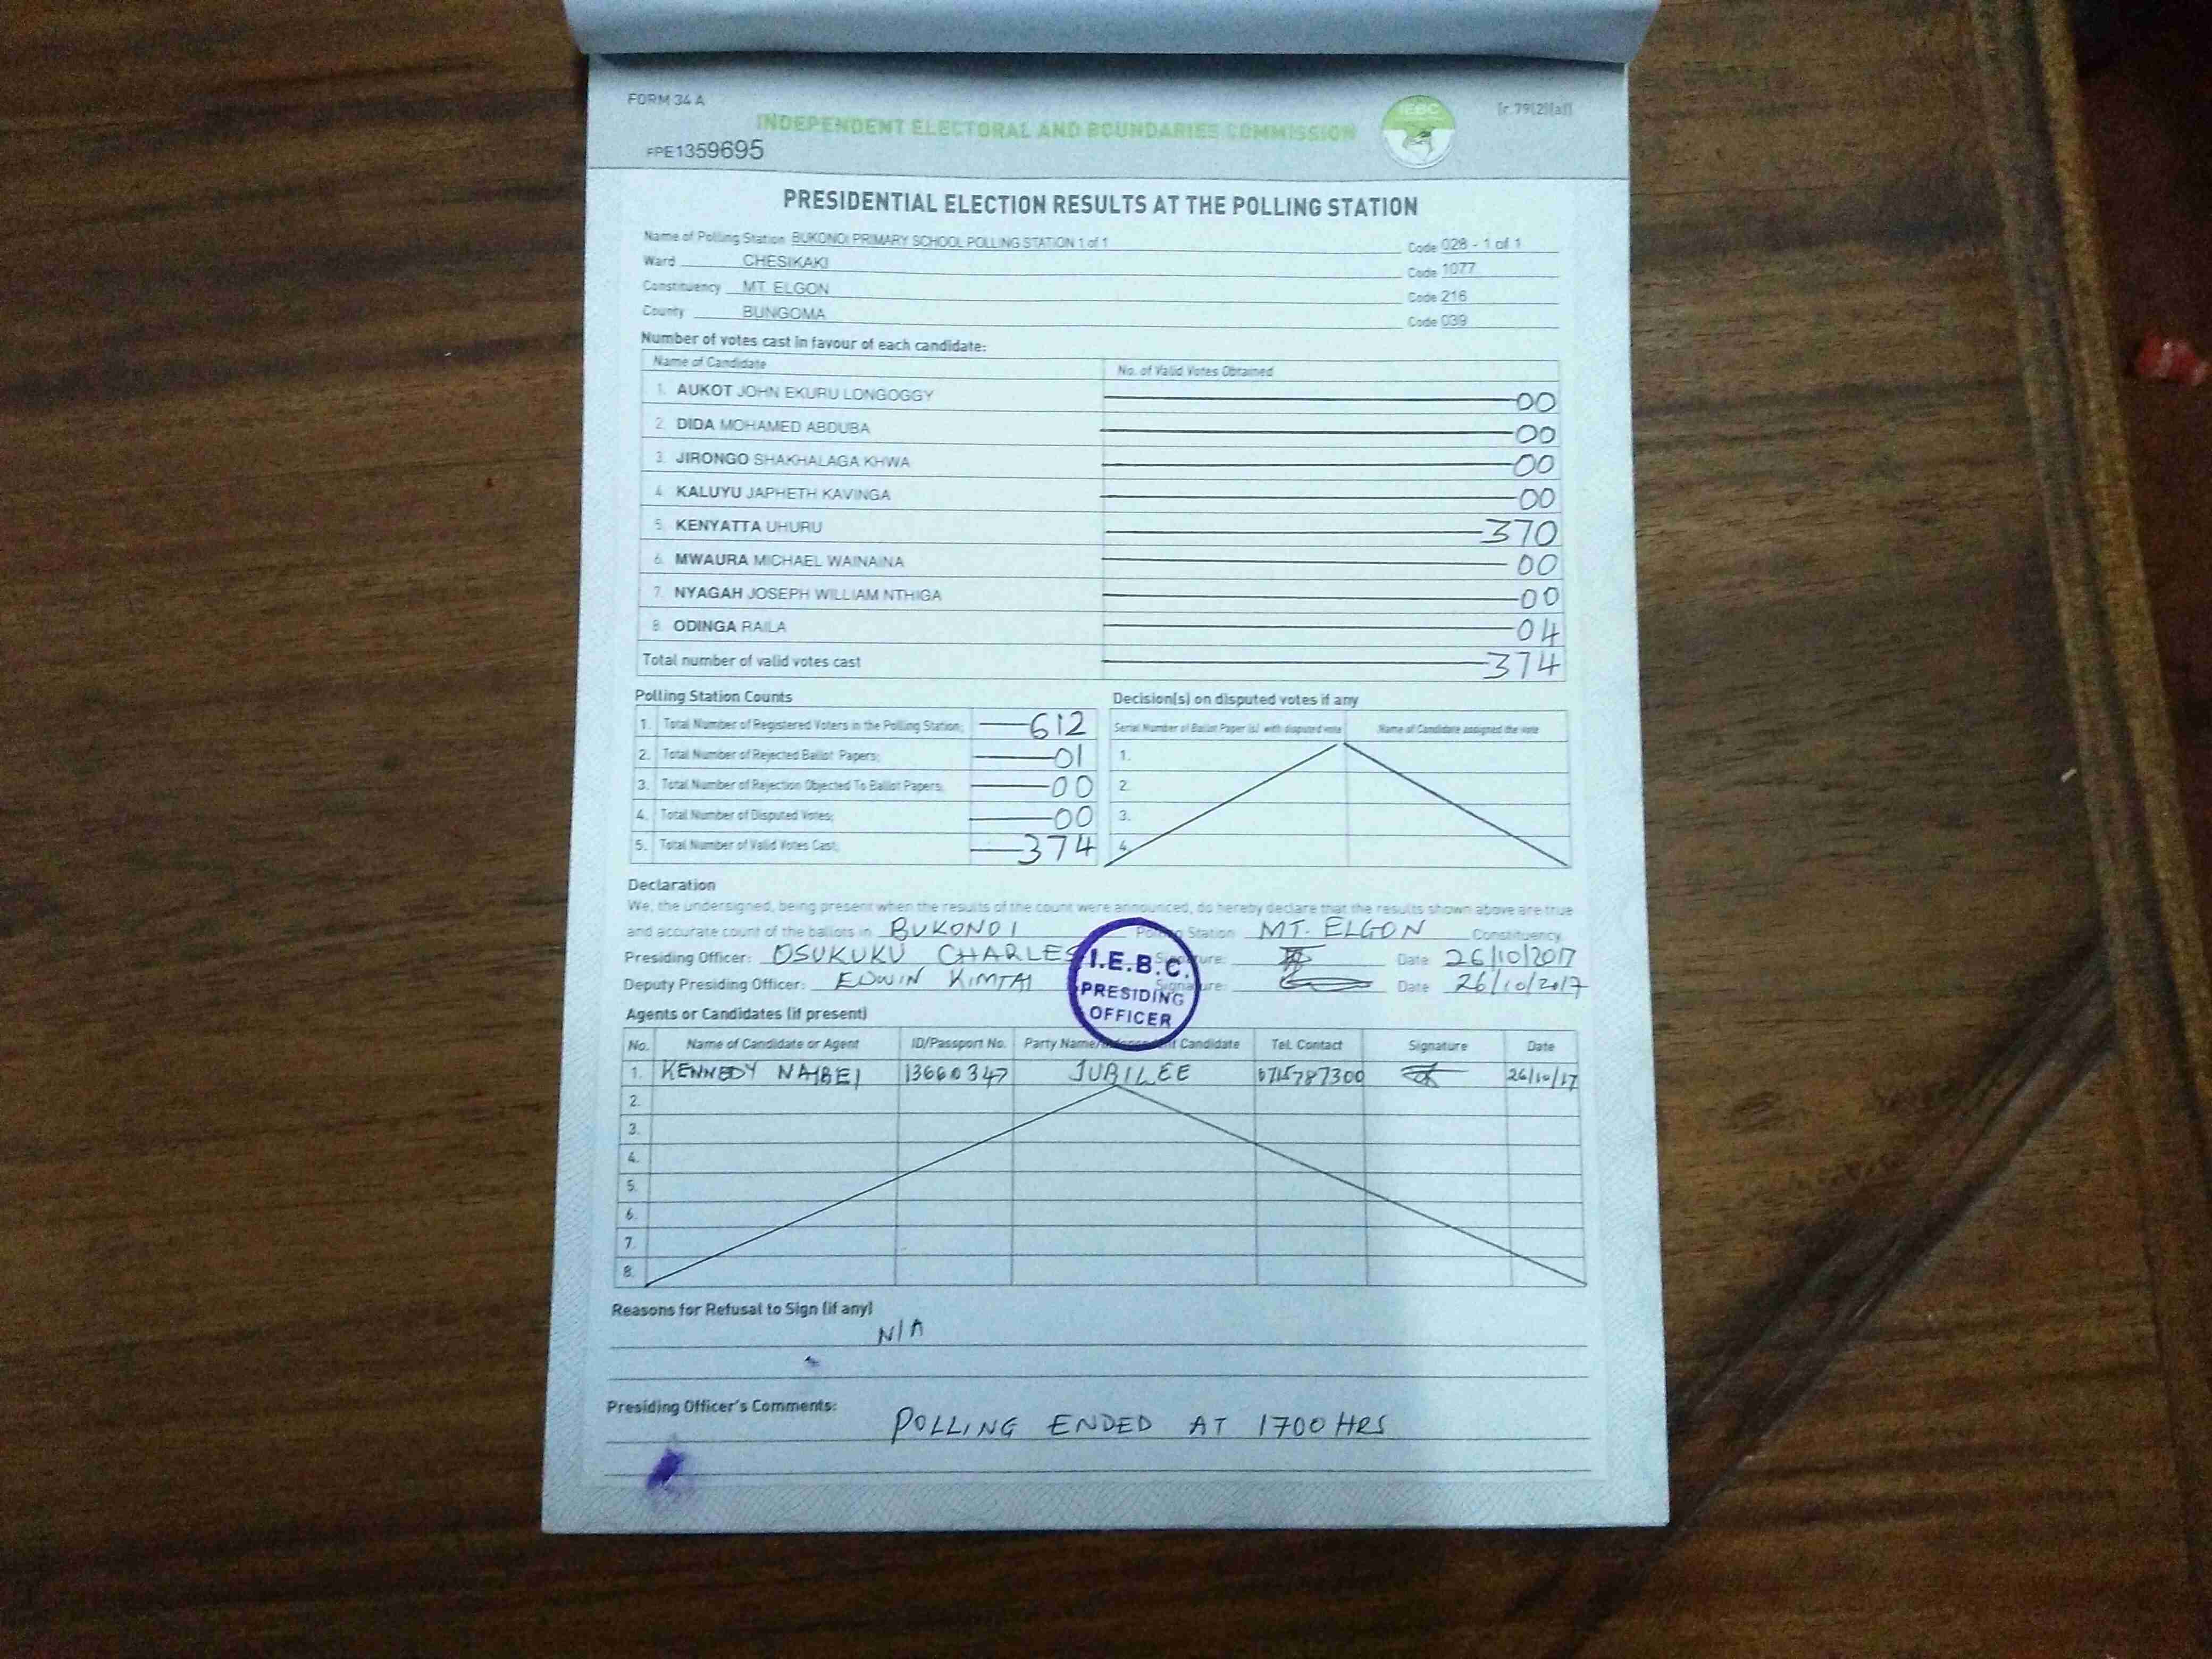 FORM 34 A
[r. 79(2)(a)]
INDEPENDENT ELECTORAL AND BOUNDARIES COMMISSION
IEBC
PPE1359695
PRESIDENTIAL ELECTION RESULTS AT THE POLLING STATION
Name of Polling Station BUKONOI PRIMARY SCHOOL POLLING STATION 1 of 1 Code 028 - 1 of 1
Ward CHESIKAKI Code 1077
Constituency MT. ELGON Code 216
County BUNGOMA Code 039
Number of votes cast in favour of each candidate:
Name of Candidate No. of Valid Votes Obtained
1. AUKOT JOHN EKURU LONGOGGY 00
2. DIDA MOHAMED ABDUBA 00
3. JIRONGO SHAKHALAGA KHWA 00
4. KALUYU JAPHETH KAVINGA 00
5. KENYATTA UHURU 370
6. MWAURA MICHAEL WAINAINA 00
7. NYAGAH JOSEPH WILLIAM NTHIGA 00
8. ODINGA RAILA 04
Total number of valid votes cast 374
Polling Station Counts
1. Total Number of Registered Voters in the Polling Station; 612
2. Total Number of Rejected Ballot Papers; 01
3. Total Number of Rejection Objected To Ballot Papers; 00
4. Total Number of Disputed Votes; 00
5. Total Number of Valid Votes Cast; 374
Decision(s) on disputed votes if any
Serial Number of Ballot Paper (s) with disputed vote Name of Candidate assigned the vote
1.
2.
3.
4.
Declaration
We, the undersigned, being present when the results of the count were announced, do hereby declare that the results shown above are true
and accurate count of the ballots in BUKONOI Polling Station MT. ELGON Constituency
Presiding Officer: OSUKUKU CHARLES Signature: Date 26/10/2017
Deputy Presiding Officer: EDWIN KIMTAI Signature: Date 26/10/2017
I.E.B.C.
PRESIDING
OFFICER
Agents or Candidates (if present)
No. Name of Candidate or Agent ID/Passport No. Party Name/Independent Candidate Tel. Contact Signature Date
1. KENNEDY NAIBEI 13660347 JUBILEE 0715787300 26/10/17
2.
3.
4.
5.
6.
7.
8.
Reasons for Refusal to Sign (if any)
N/A
Presiding Officer's Comments:
POLLING ENDED AT 1700 HRS